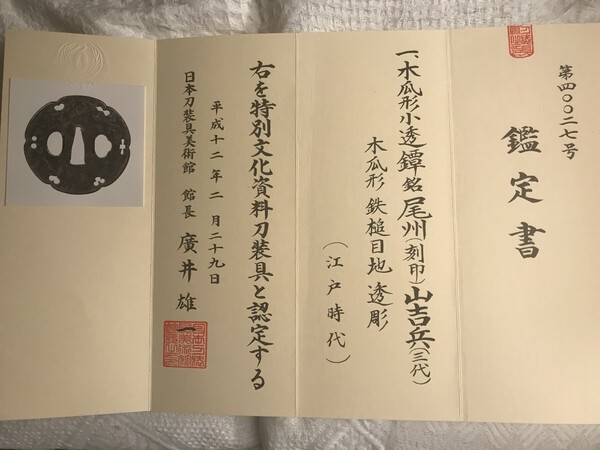 第四〇〇二七号
鑑定書
一、木瓜形小透鐔 銘 尾州(刻印)山吉兵(三代)
木瓜形 鉄槌目地 透彫
(江戸時代)
右を特別文化資料刀装具と認定する
平成十二年二月二十九日
日本刀装具美術館 館長 廣井雄一